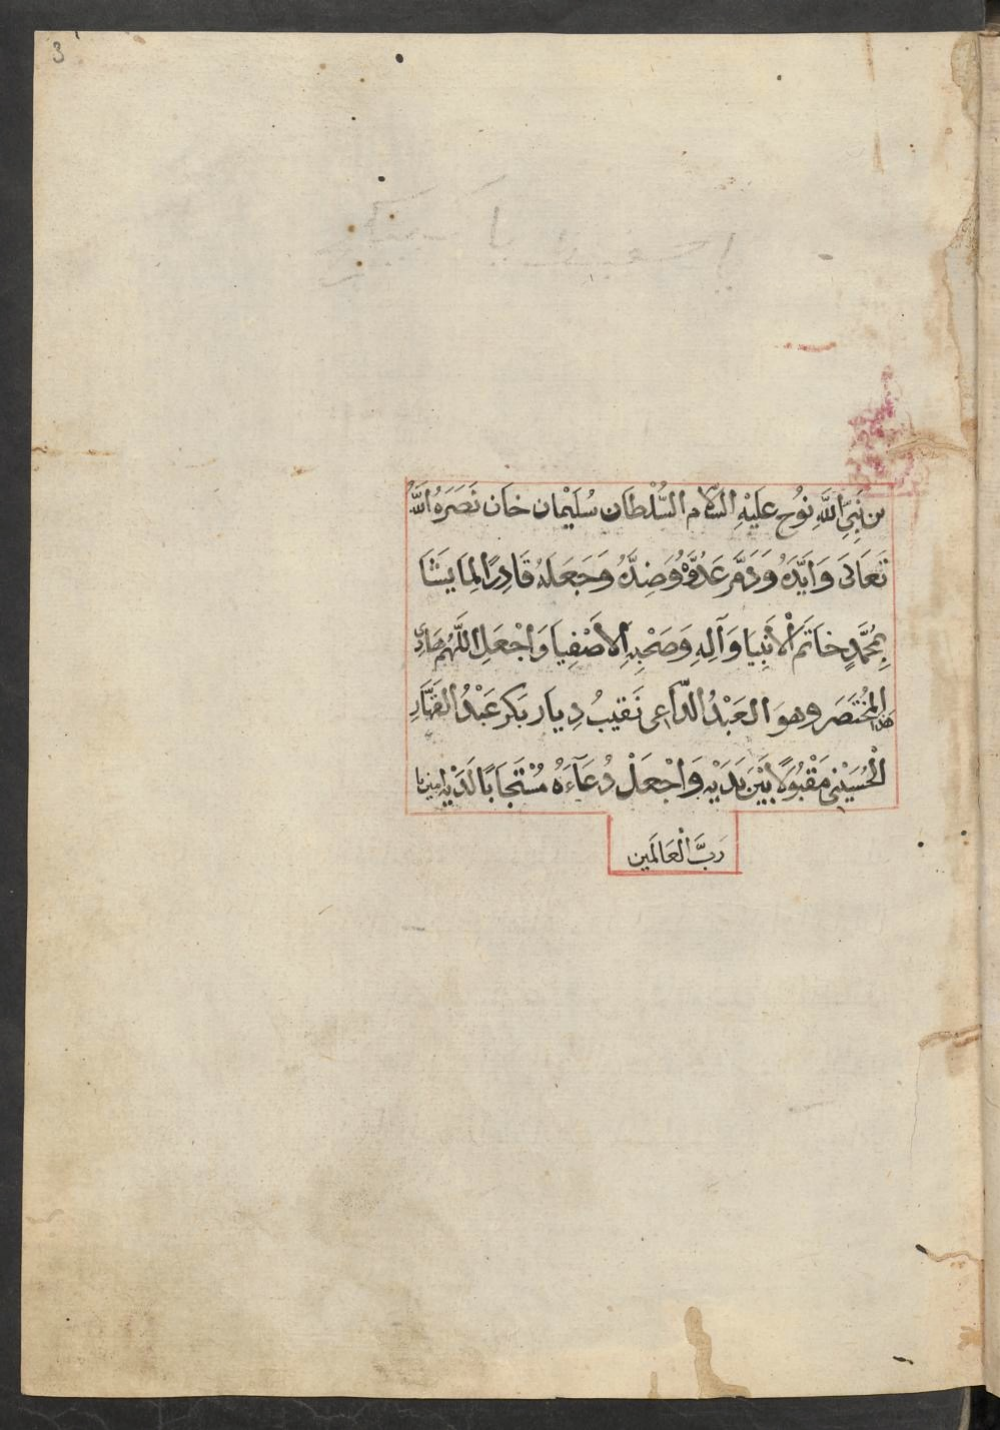 3
من نَبِيِّ اللَّهِ نوُح عَلَيْهِ السَّلَام السُّلْطَان سُلَيْمان خَان نَصَرَهُ اللَّهُ
تَعَالَى وَاَيَّدَهُ وَدَمَّرَ عَدُوَّهُ وَضِدَّهُ وَجَعَلَهُ قَادِرًا لِمَا يَشَا
بِمُحَمَّدٍ خَاتَم الْأَنْبِيَا وَآلِهِ وَصَحْبِهِ الْاَصْفِيَا وَاجْعَلِ اللَّهُمَّ
هذا المُخْتَصَر وهوَ العَبْدُ الدَّاعى نَقيبُ دِيار بَكر عَبْدُ القَهَّارِ
الْحُسَيْنِى مَقْبُوَلًا بَيْنَ يَدَيْهِ وَاجْعَلْ دُعَآءَهُ مُسْتَجَابًا لَدَيْهِ امين يا
رَبَّ الْعَالَمَين